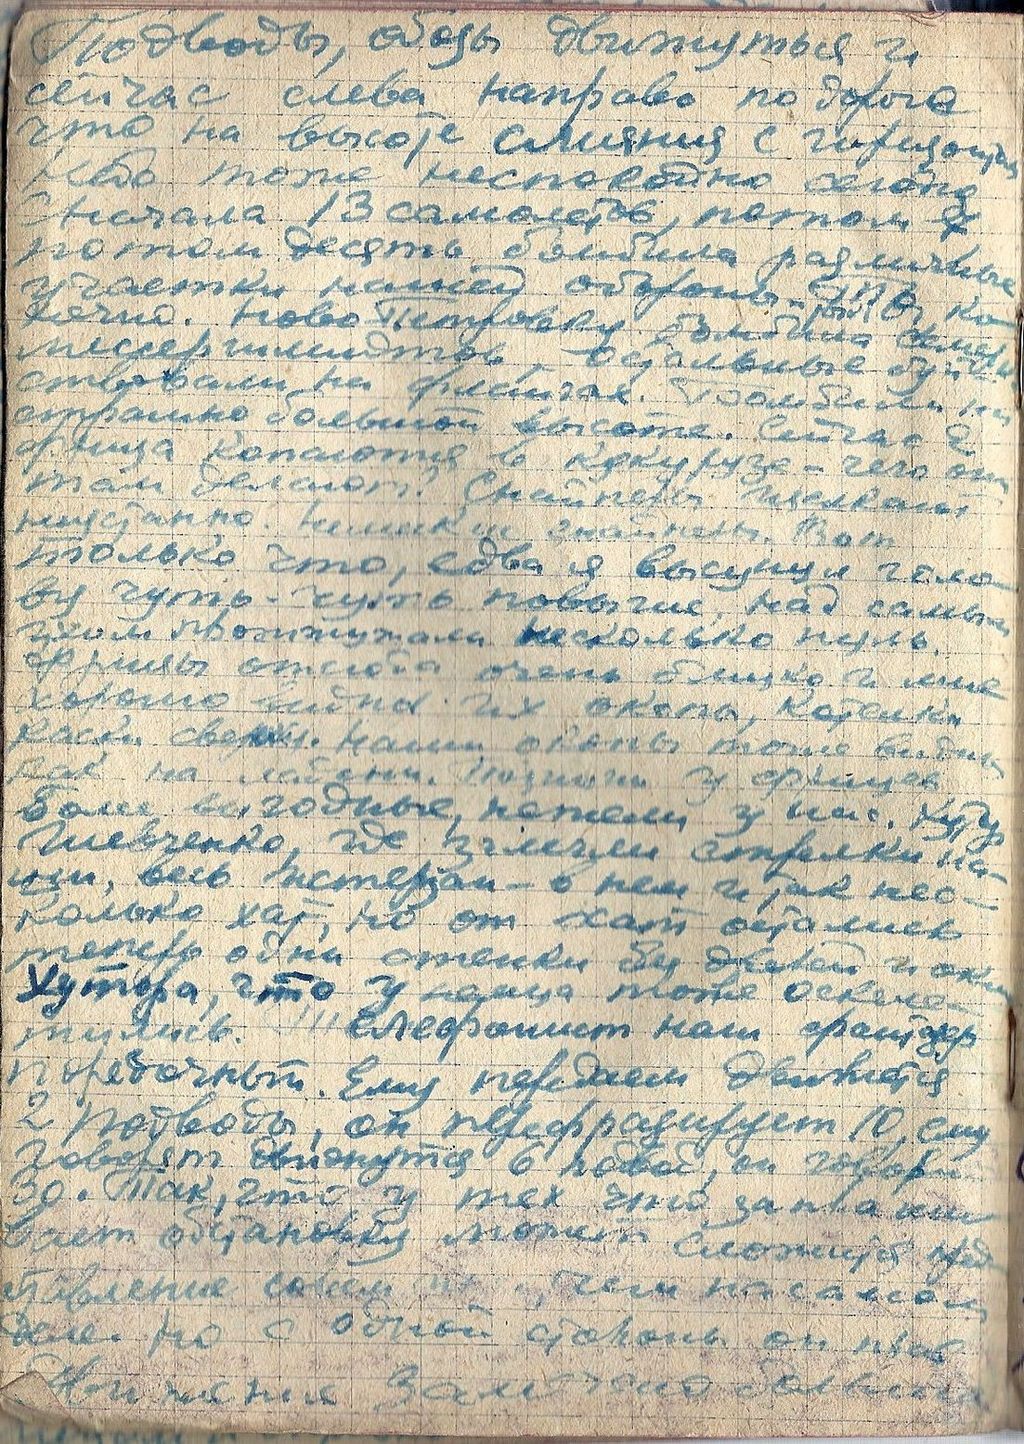 Подводы, обозы движуться и
сейчас слева направо по дороге
что на высоте слияния с горизонтом
Небо тоже неспокойно сегодня
Сначала 13 самолетов, потом 8
потом десять бомбила различные
участки нашей обороны.
Ново Петровку бомбила
мессершмидтов остальные буйн
ствовали на флангах. Бомбили на
страшно большой высоте. Сейчас 2
фрица копаются в кукурузе - чего они
там делают? Снайперы щелкают
неустанно. снайперы. Вот
только что, едва я высунул голо
ву чуть-чуть повыше, над самым
ухом прожужжали несколько пуль.
Фрицы отсюда очень близко и мне
хорошо видны их окопы, котелки
каски сверху. Наши окопы тоже видны
как на ладони. Позиции у фрицев
более выгодные, нежели у нас. Хутор
Шевченко, где залегли стрелки на-
ши, весь истерзан - в нем и так нес-
колько хат, но от хат остались
теперь одни стенки без дверей и окон
Хутора, что у немца тоже оскоме-
тились. Телефонист наш фантазер
порядочный. Ему передаем движется
2 подводы, он перефразирует 10, ему
говорят движутся 6 подвод, он говори
30. Так, что у тех что записы
вает обстановку может сложится пред
ставление совсем не чем на самом
деле. Но с одной стороны он прав